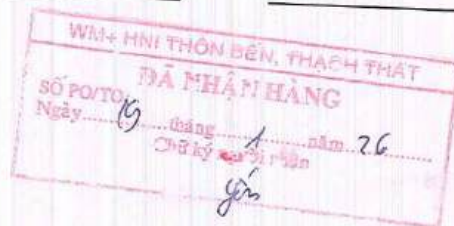 WM+ HNI THÔN BẾN, THẠCH THẤT
ĐÃ NHẬN HÀNG
SỐ PO/TO
Ngày 19 tháng 1 năm 26
Chữ ký người nhận